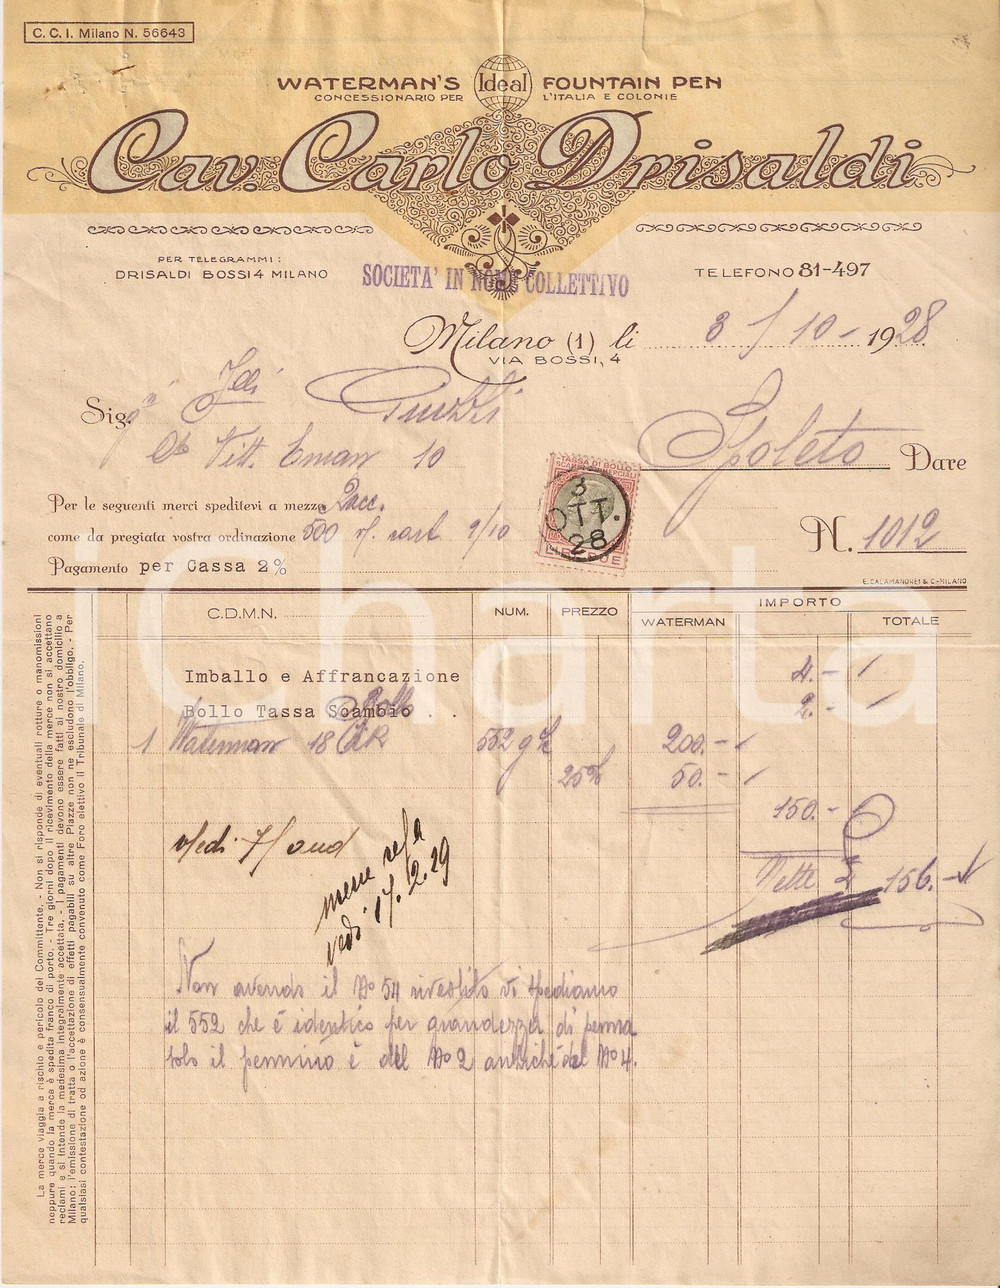 C. C. I. Milano N. 56643
WATERMAN'S Ideal FOUNTAIN PEN
CONCESSIONARIO PER L'ITALIA E COLONIE
Cav. Carlo Drisaldi
PER TELEGRAMMI:
DRISALDI BOSSI 4 MILANO
SOCIETA' IN NOME COLLETTIVO
TELEFONO 81-497
Milano (1) li 3 / 10 - 1928
VIA BOSSI, 4
Sig.
Vitt. Eman 10
Spoleto Dare
TASSA DI BOLLO
SCAMBI COMMERCIALI
3 OTT. 28
LIRE DUE
Per le seguenti merci speditevi a mezzo pacc.
come da pregiata vostra ordinazione 500 1/10
Pagamento per Cassa 2%
N. 1012
E. CALAMANDREI & C.-MILANO
C.D.M.N. NUM. PREZZO IMPORTO
WATERMAN TOTALE
Imballo e Affrancazione 4.-
Bollo Tassa Scambio 2.-
1 Waterman 18 552 200.-
25% 50.-
150.-
vedi
Nette 156.-
merce resa
vedi 17.2.29
Non avendo il No 54 rivestito vi spediamo
il 552 che è identico per grandezza di penna
solo il pennino è del No 2 anziché del No 4.
La merce viaggia a rischio e pericolo del Committente. - Non si risponde di eventuali rotture o manomissioni
neppure quando la merce è spedita franco di porto. - Tre giorni dopo il ricevimento della merce non si accettano
reclami e si intende la medesima integralmente accettata. - I pagamenti devono essere fatti al nostro domicilio a
Milano: l'emissione di tratta o l'accettazione di effetti pagabili su altre Piazze non ne escludono l'obbligo. - Per
qualsiasi contestazione od azione è consensualmente convenuto come Foro elettivo il Tribunale di Milano.
iCharta